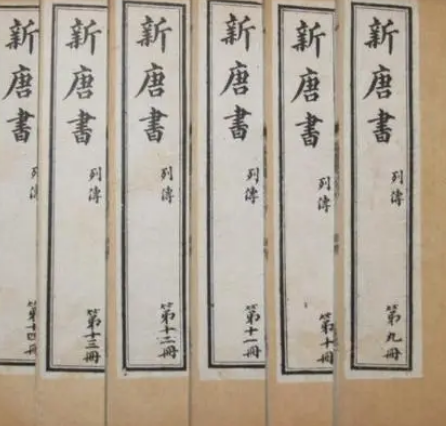 新唐書
列傳
第九冊
新唐書
列傳
第十冊
新唐書
列傳
第十一冊
新唐書
列傳
第十二冊
新唐書
列傳
第十三冊
新唐書
列傳
第十四冊